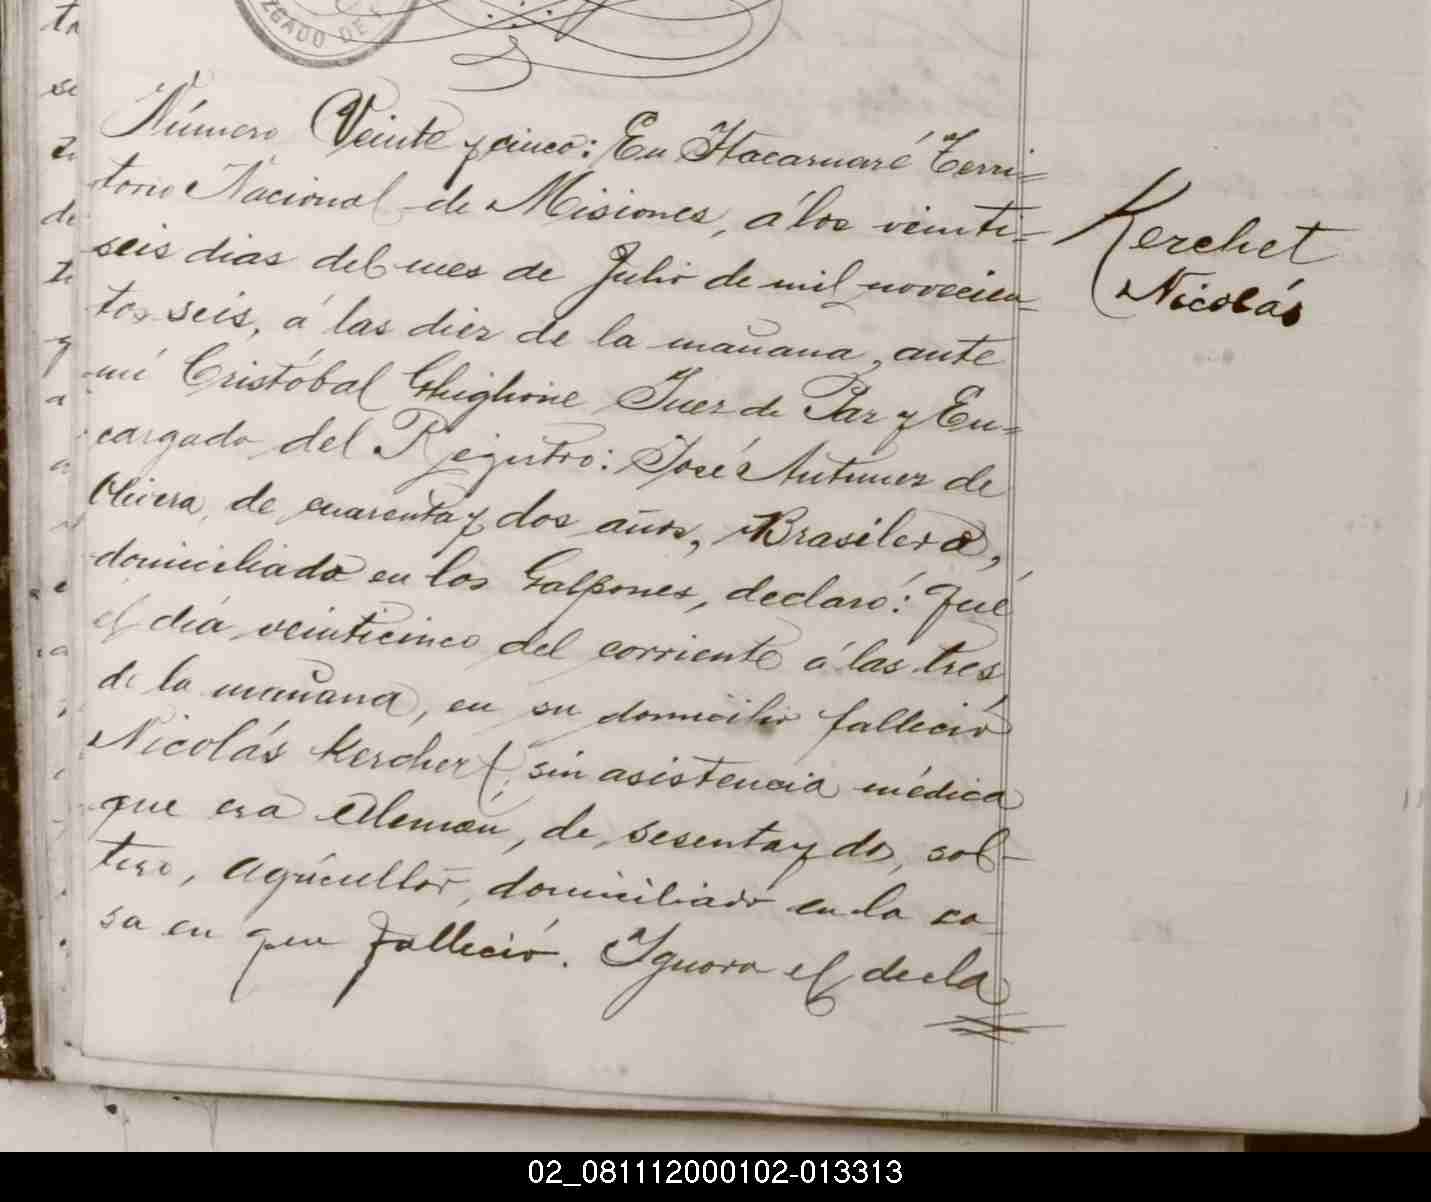 ZGADO DE
Número Veinte y cinco: En Itacaruaré Terri=
torio Nacional de Misiones, á los veinti=
seis dias del mes de Julio de mil novecien=
tos seis, á las diez de la mañana, ante
mí Cristóbal Ghiglione Juez de Paz y En=
cargado del Registro: José Antunez de
Olivera, de cuarenta y dos años, Brasilero,
domiciliado en los Galpones, declaró: Que
el día veinticinco del corriente á las tres
de la mañana, en su domicilio falleció
Nicolás Kerchert, sin asistencia médica
que era Aleman, de sesenta y dos, sol-
tero, agricultor, domiciliado en la ca-
sa en que falleció. Ignora el decla
Kerchet
Nicolás
02_081112000102-013313